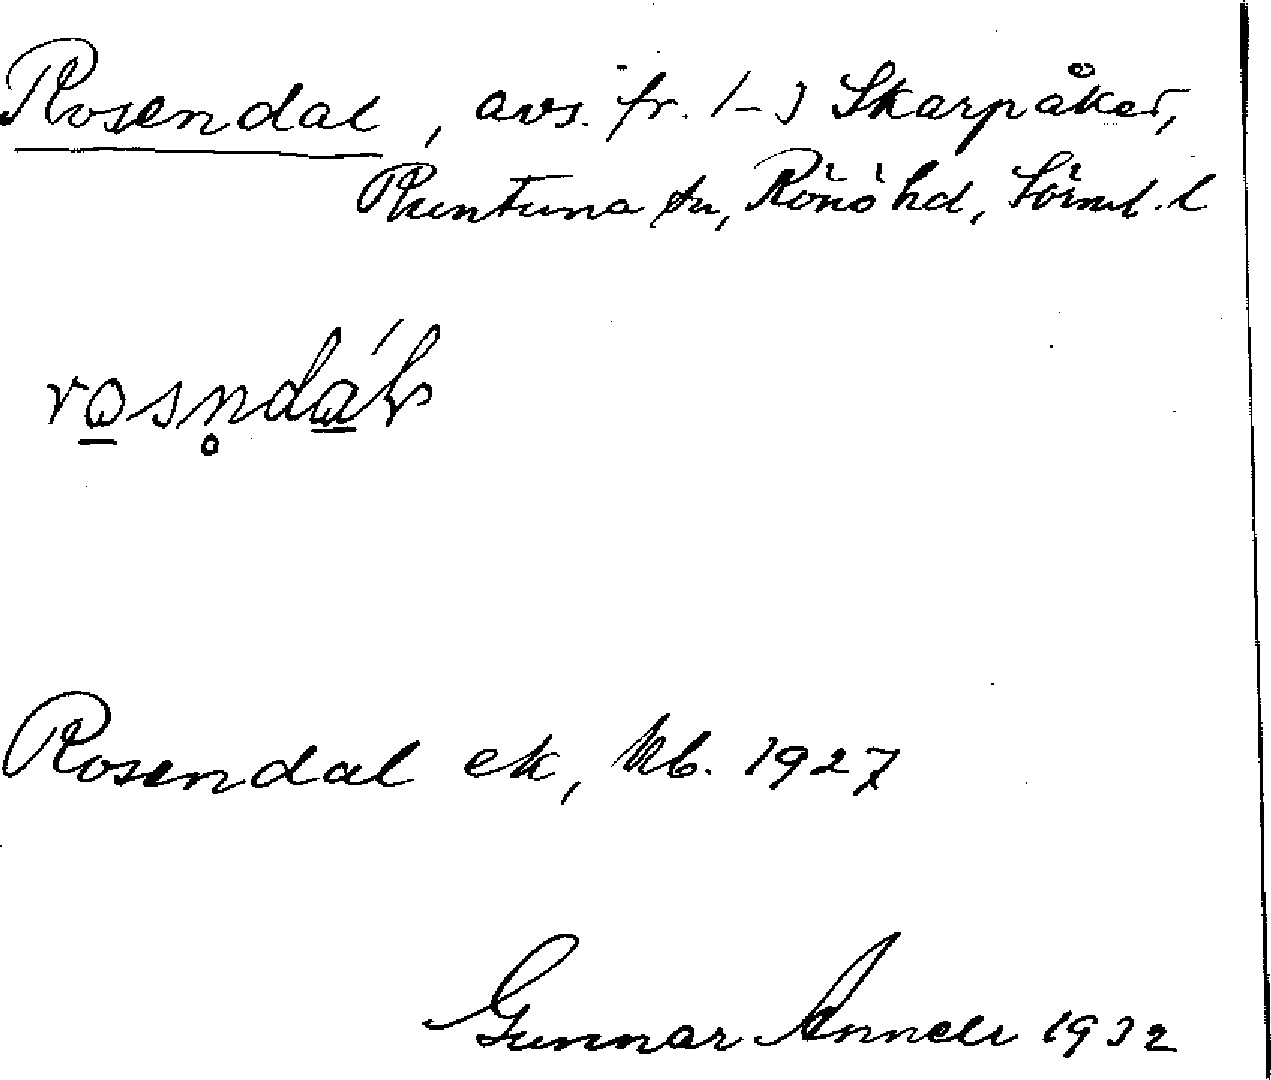 Rosendal, avs. fr. 1-3 Skarpåker,
Runtuna sn, Rönö hd, Sörml. l
Rosendal ek, kb. 1927
Gunnar Annell 1932